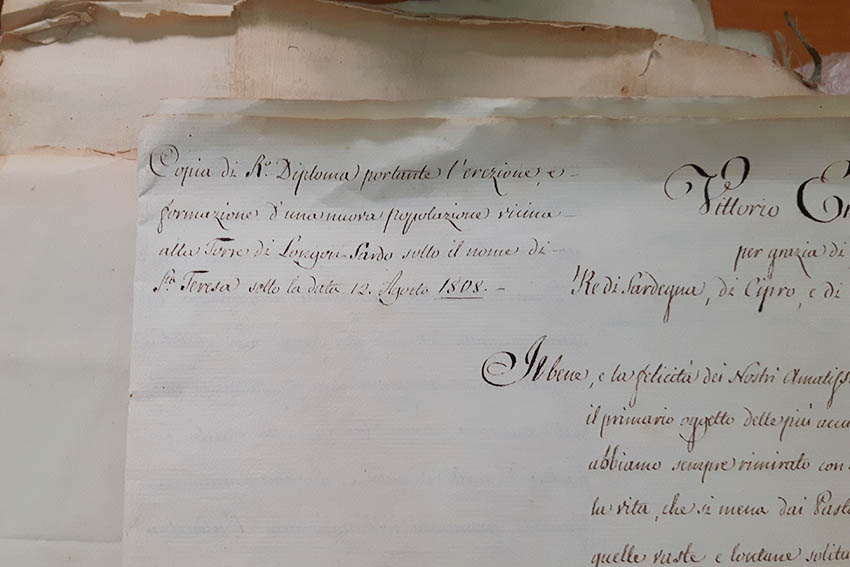 Copia di R.º Diploma portante l'erezione, e
formazione d'una nuova popolazione vicina
alla Torre di Longon-Sardo sotto il nome di
Sta Teresa sotto la data 12. Agosto 1808.
Vittorio
per grazia di
Re di Sardegna, di Cipro, e di
Il bene, e la felicità dei Nostri
il primario oggetto delle più
abbiamo sempre rimirato con
la vita, che si mena dai
quelle vaste e lontane